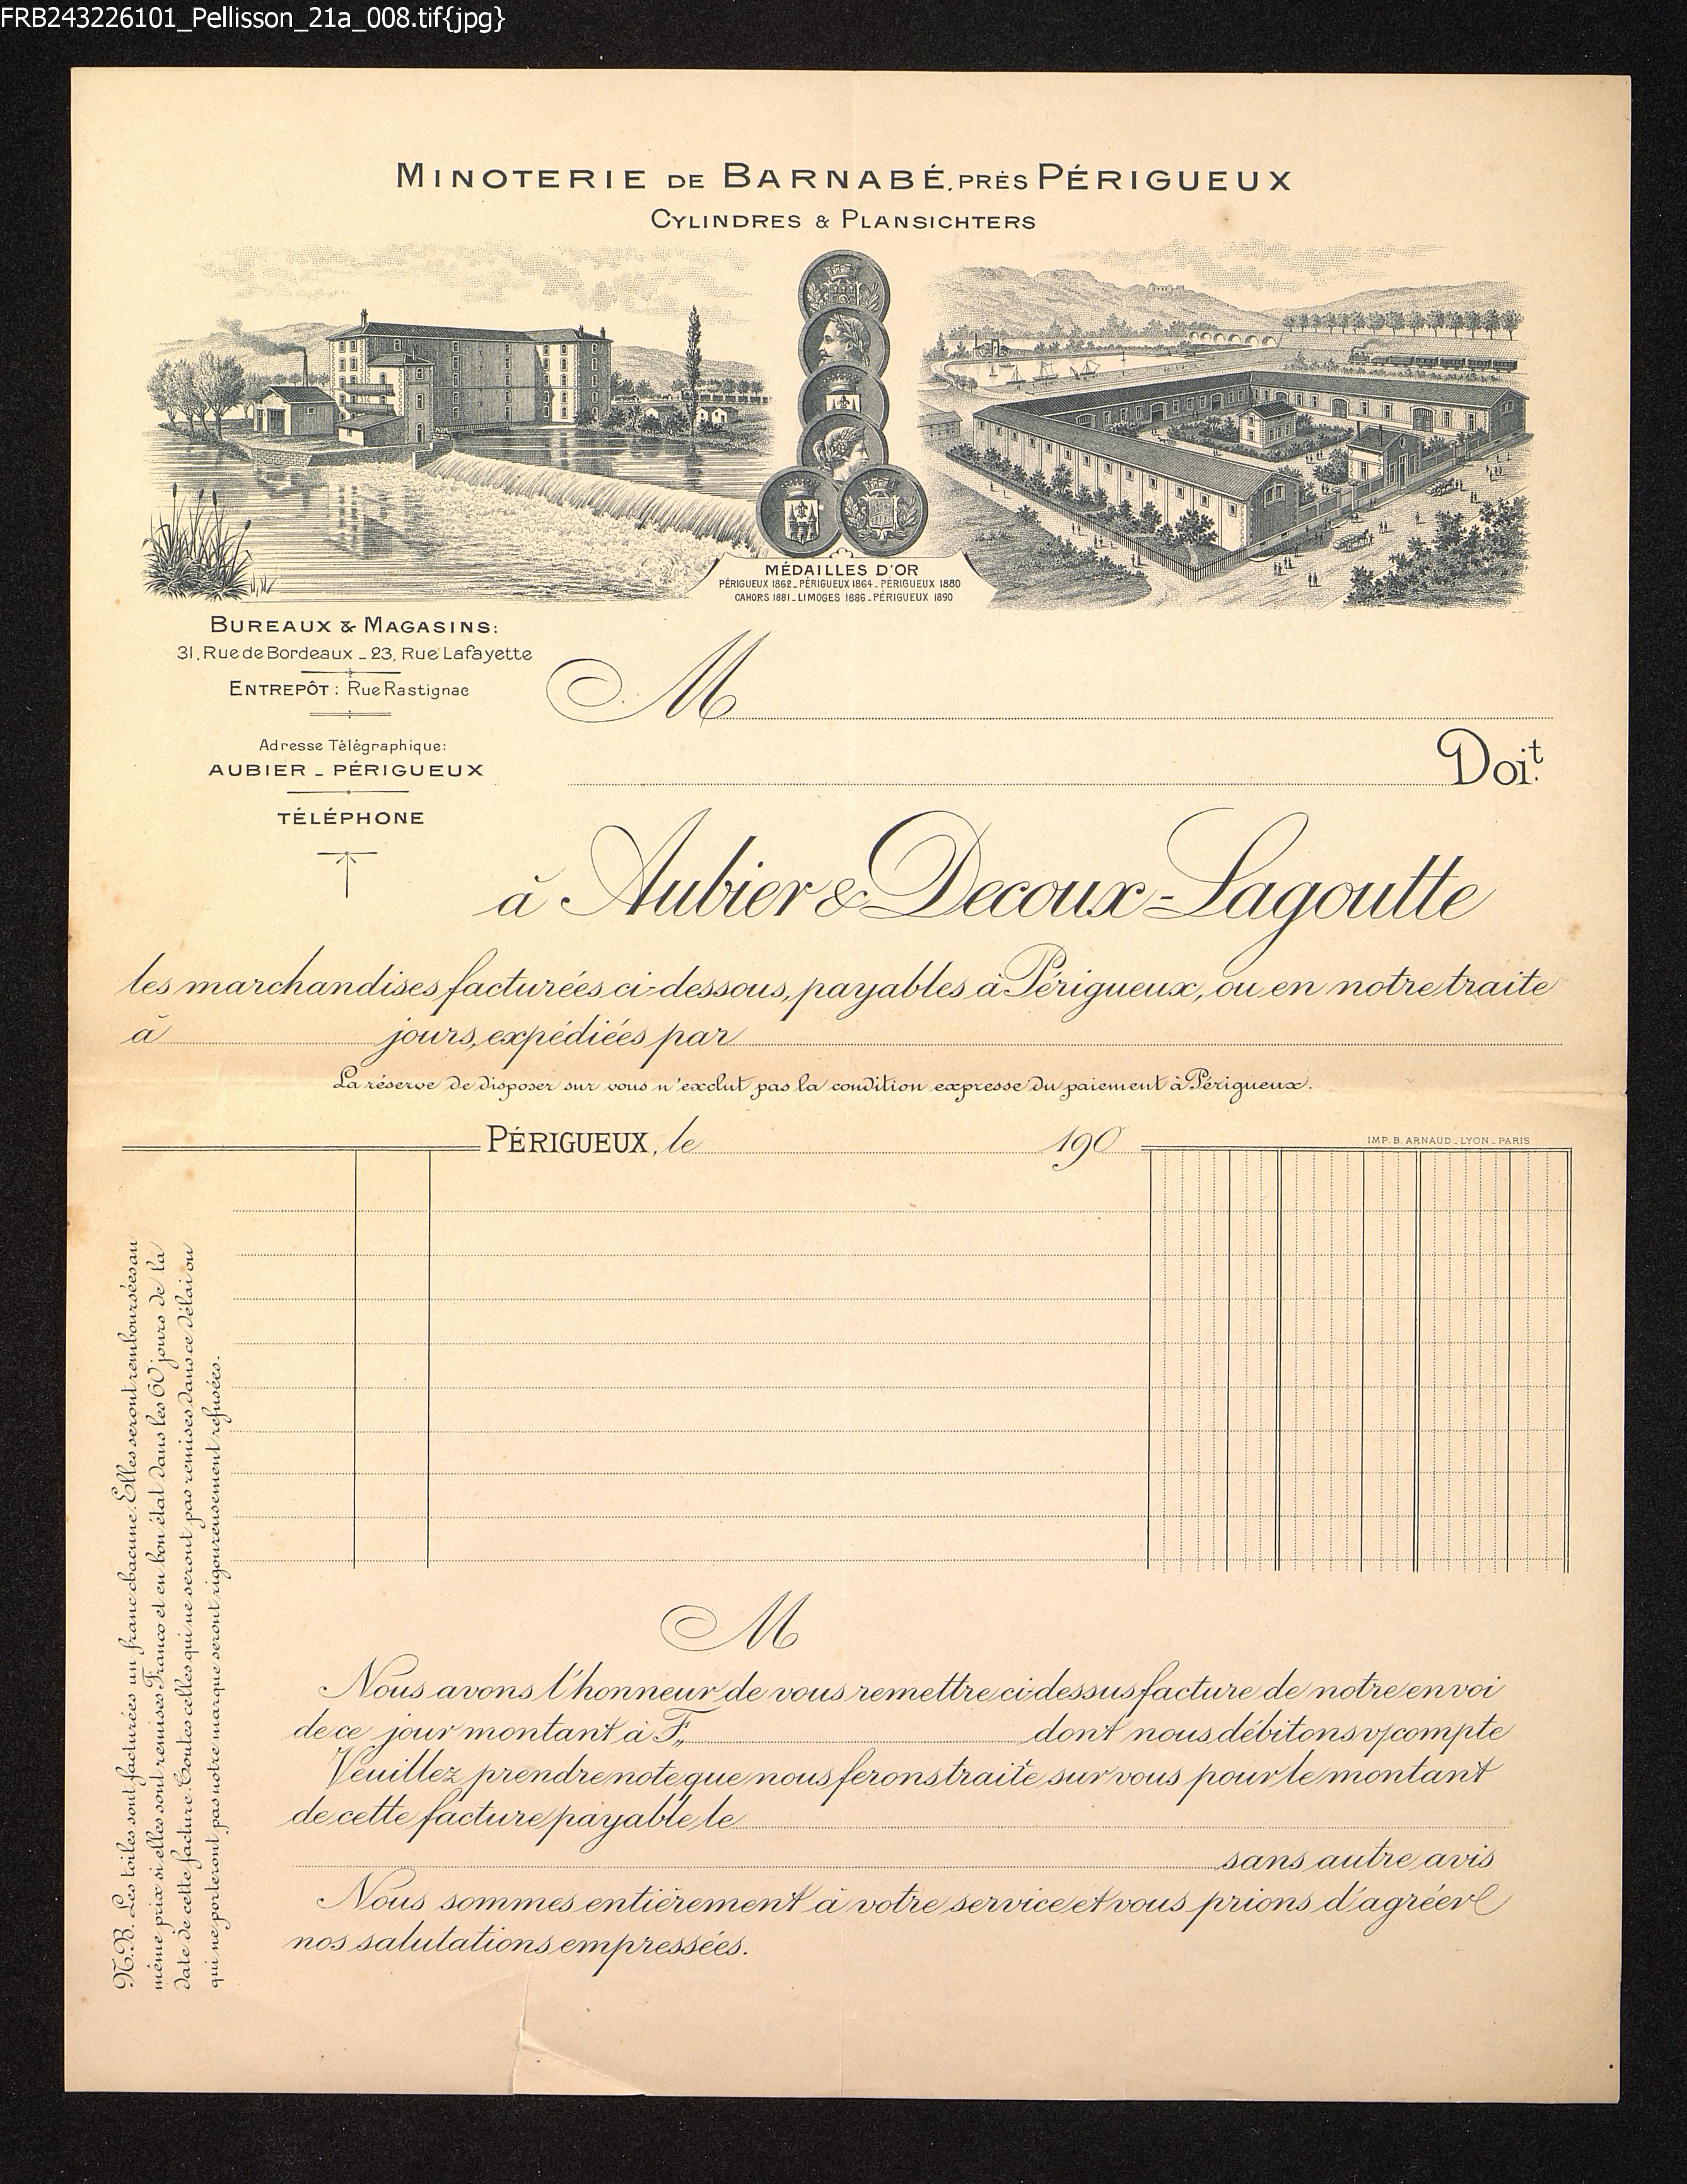 FRB243226101_Pellisson_21a_008.tif{jpg}
MINOTERIE DE BARNABÉ, PRÈS PÉRIGUEUX
CYLINDRES & PLANSICHTERS
MÉDAILLES D'OR
PÉRIGUEUX 1862_PÉRIGUEUX 1864_PÉRIGUEUX 1880
CAHORS 1881_LIMOGES 1886_PÉRIGUEUX 1890
BUREAUX & MAGASINS:
31, Rue de Bordeaux _ 23, Rue Lafayette
ENTREPÔT : Rue Rastignac
Adresse Télégraphique:
AUBIER _ PÉRIGUEUX
TÉLÉPHONE
M
Doit.
à Aubier & Decoux-Lagoutte
les marchandises facturées ci-dessous, payables à Périgueux, ou en notre traite
à jours, expédiées par
La réserve de disposer sur vous n'exclut pas la condition expresse du paiement à Périgueux.
PÉRIGUEUX, le 190
IMP. B. ARNAUD_LYON_PARIS
N.B. Les toiles sont facturées un franc chacune. Elles seront remboursées au
même prix si elles sont remises Franco et en bon état dans les 60 jours de la
date de cette facture. Toutes celles qui ne seront pas remises dans ce délai ou
qui ne porteront pas notre marque seront rigoureusement refusées.
M
Nous avons l'honneur de vous remettre ci-dessus facture de notre envoi
de ce jour montant à F,, dont nous débitons v/compte
Veuillez prendre note que nous ferons traite sur vous pour le montant
de cette facture payable le
sans autre avis
Nous sommes entièrement à votre service et vous prions d'agréer
nos salutations empressées.